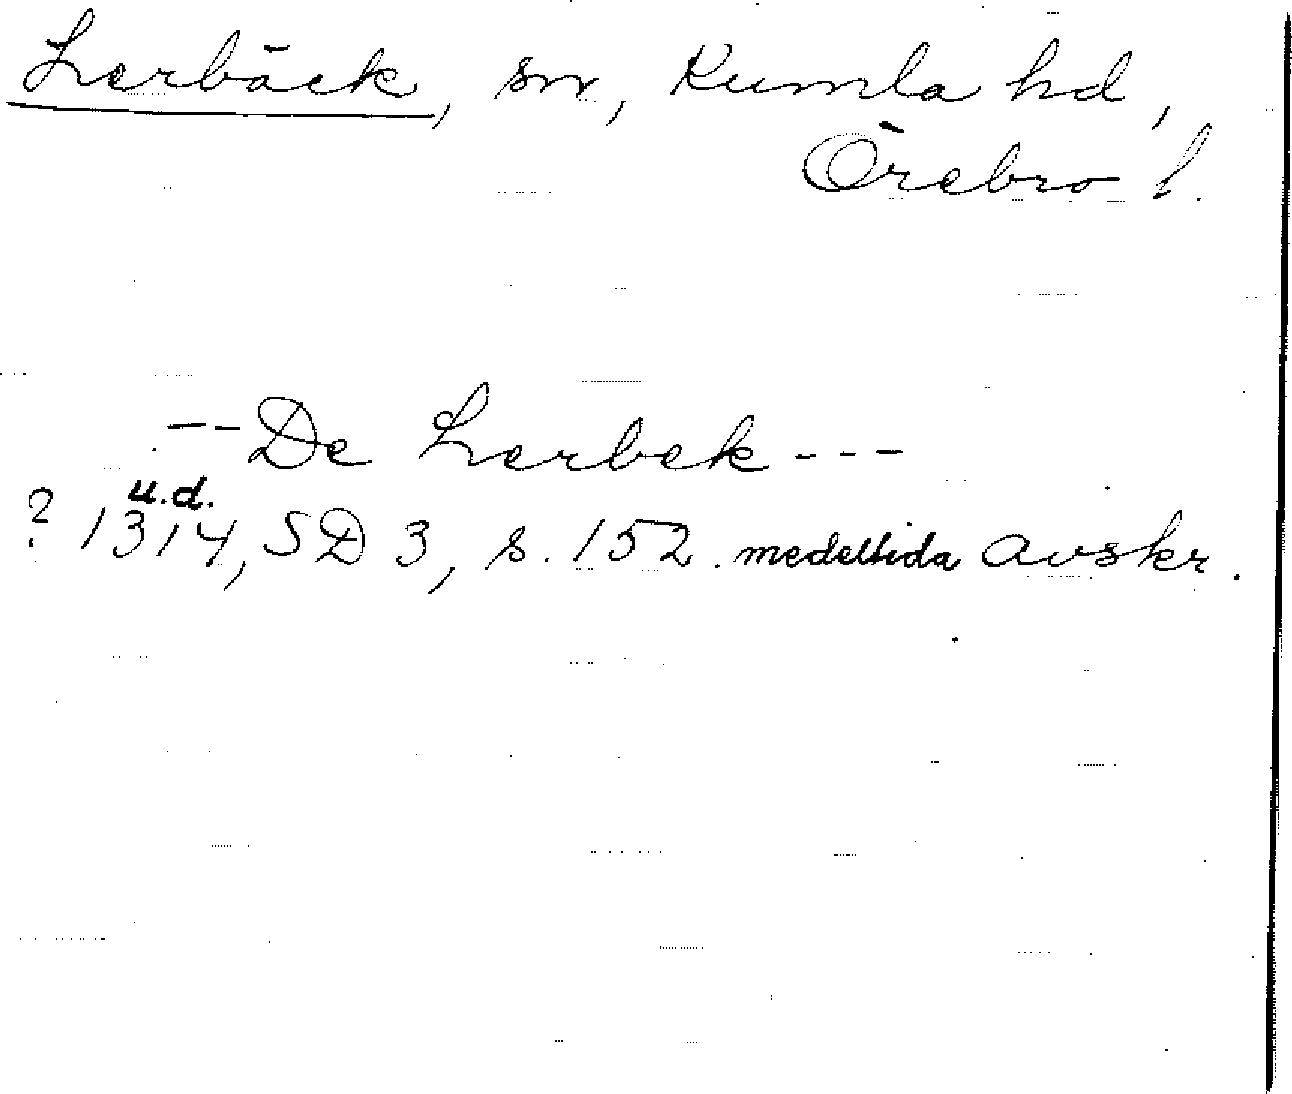 Lerbäck, sn, Kumla hd,
Örebro l.
-- De Lerbek ---
u.d.
? 1314, SD 3, s. 152. medeltida avskr.